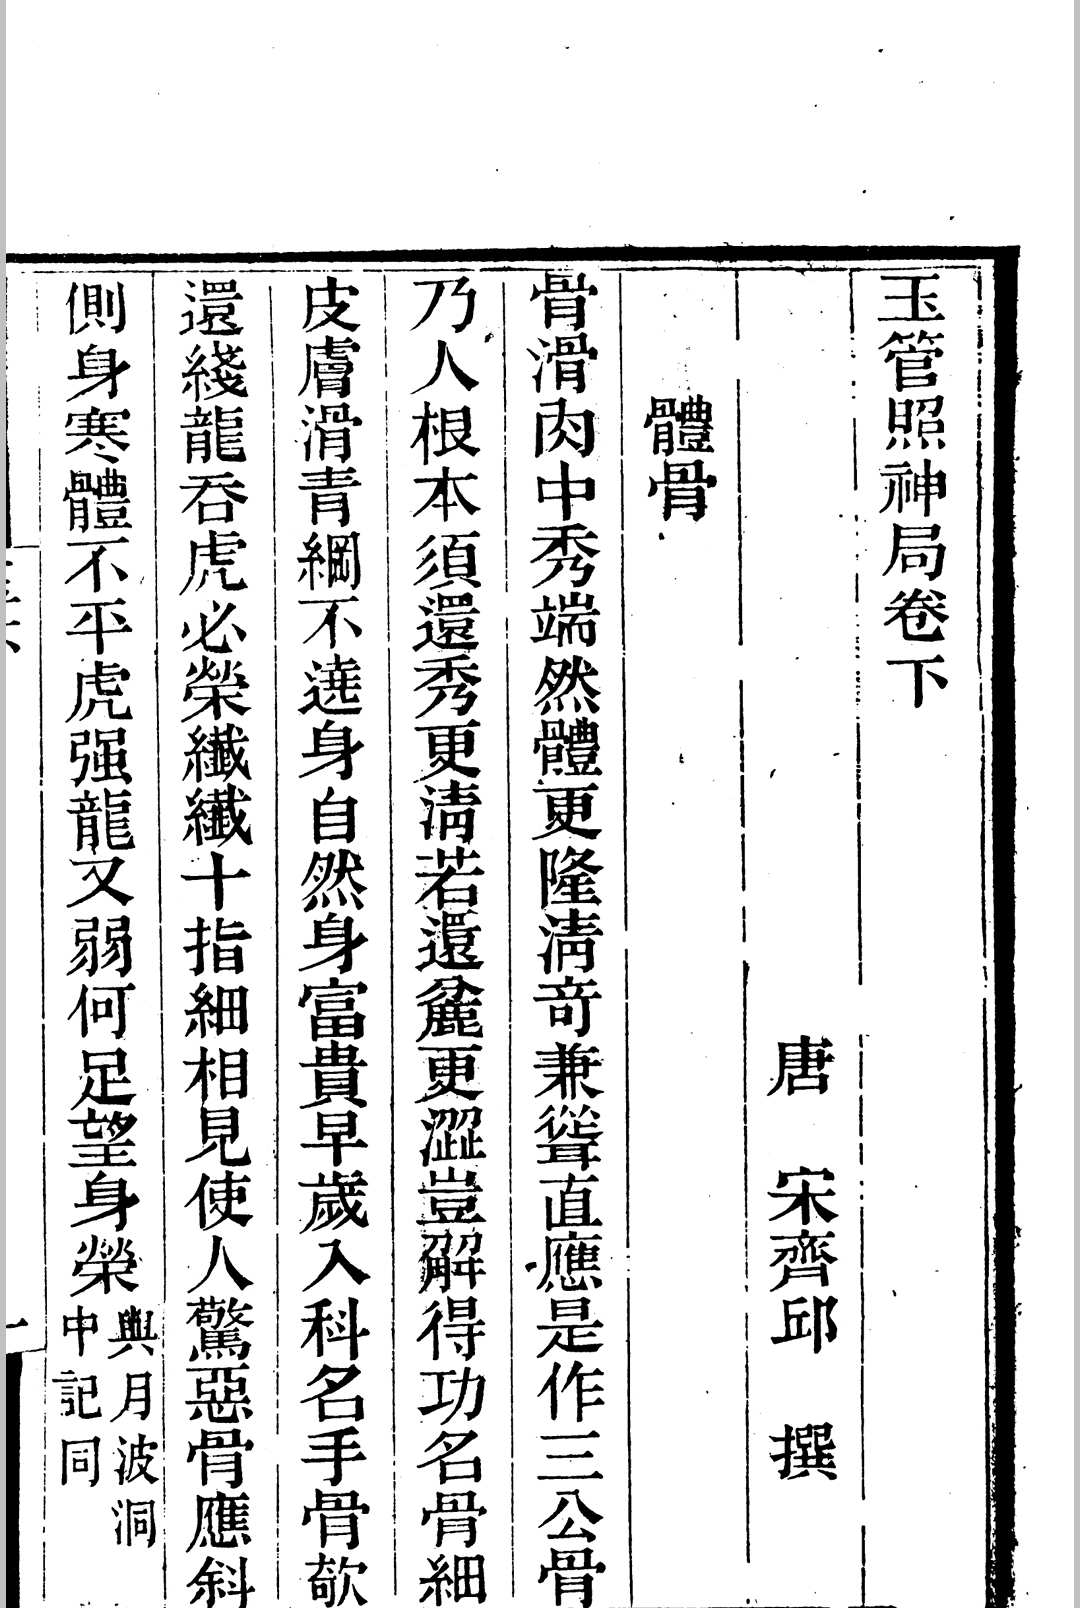 玉管照神局卷下
唐　宋齊邱　撰
體骨
骨滑肉中秀端然體更隆淸竒兼聳直應是作三公骨
乃人根本須還秀更淸若還麄更澀豈解得功名骨細
皮膚滑青綱不遶身自然身富貴早歲入科名手骨欹
還綫龍吞虎必榮纖纖十指細相見使人驚惡骨應斜
側身寒體不平虎强龍又弱何足望身榮
與月波洞
中記同